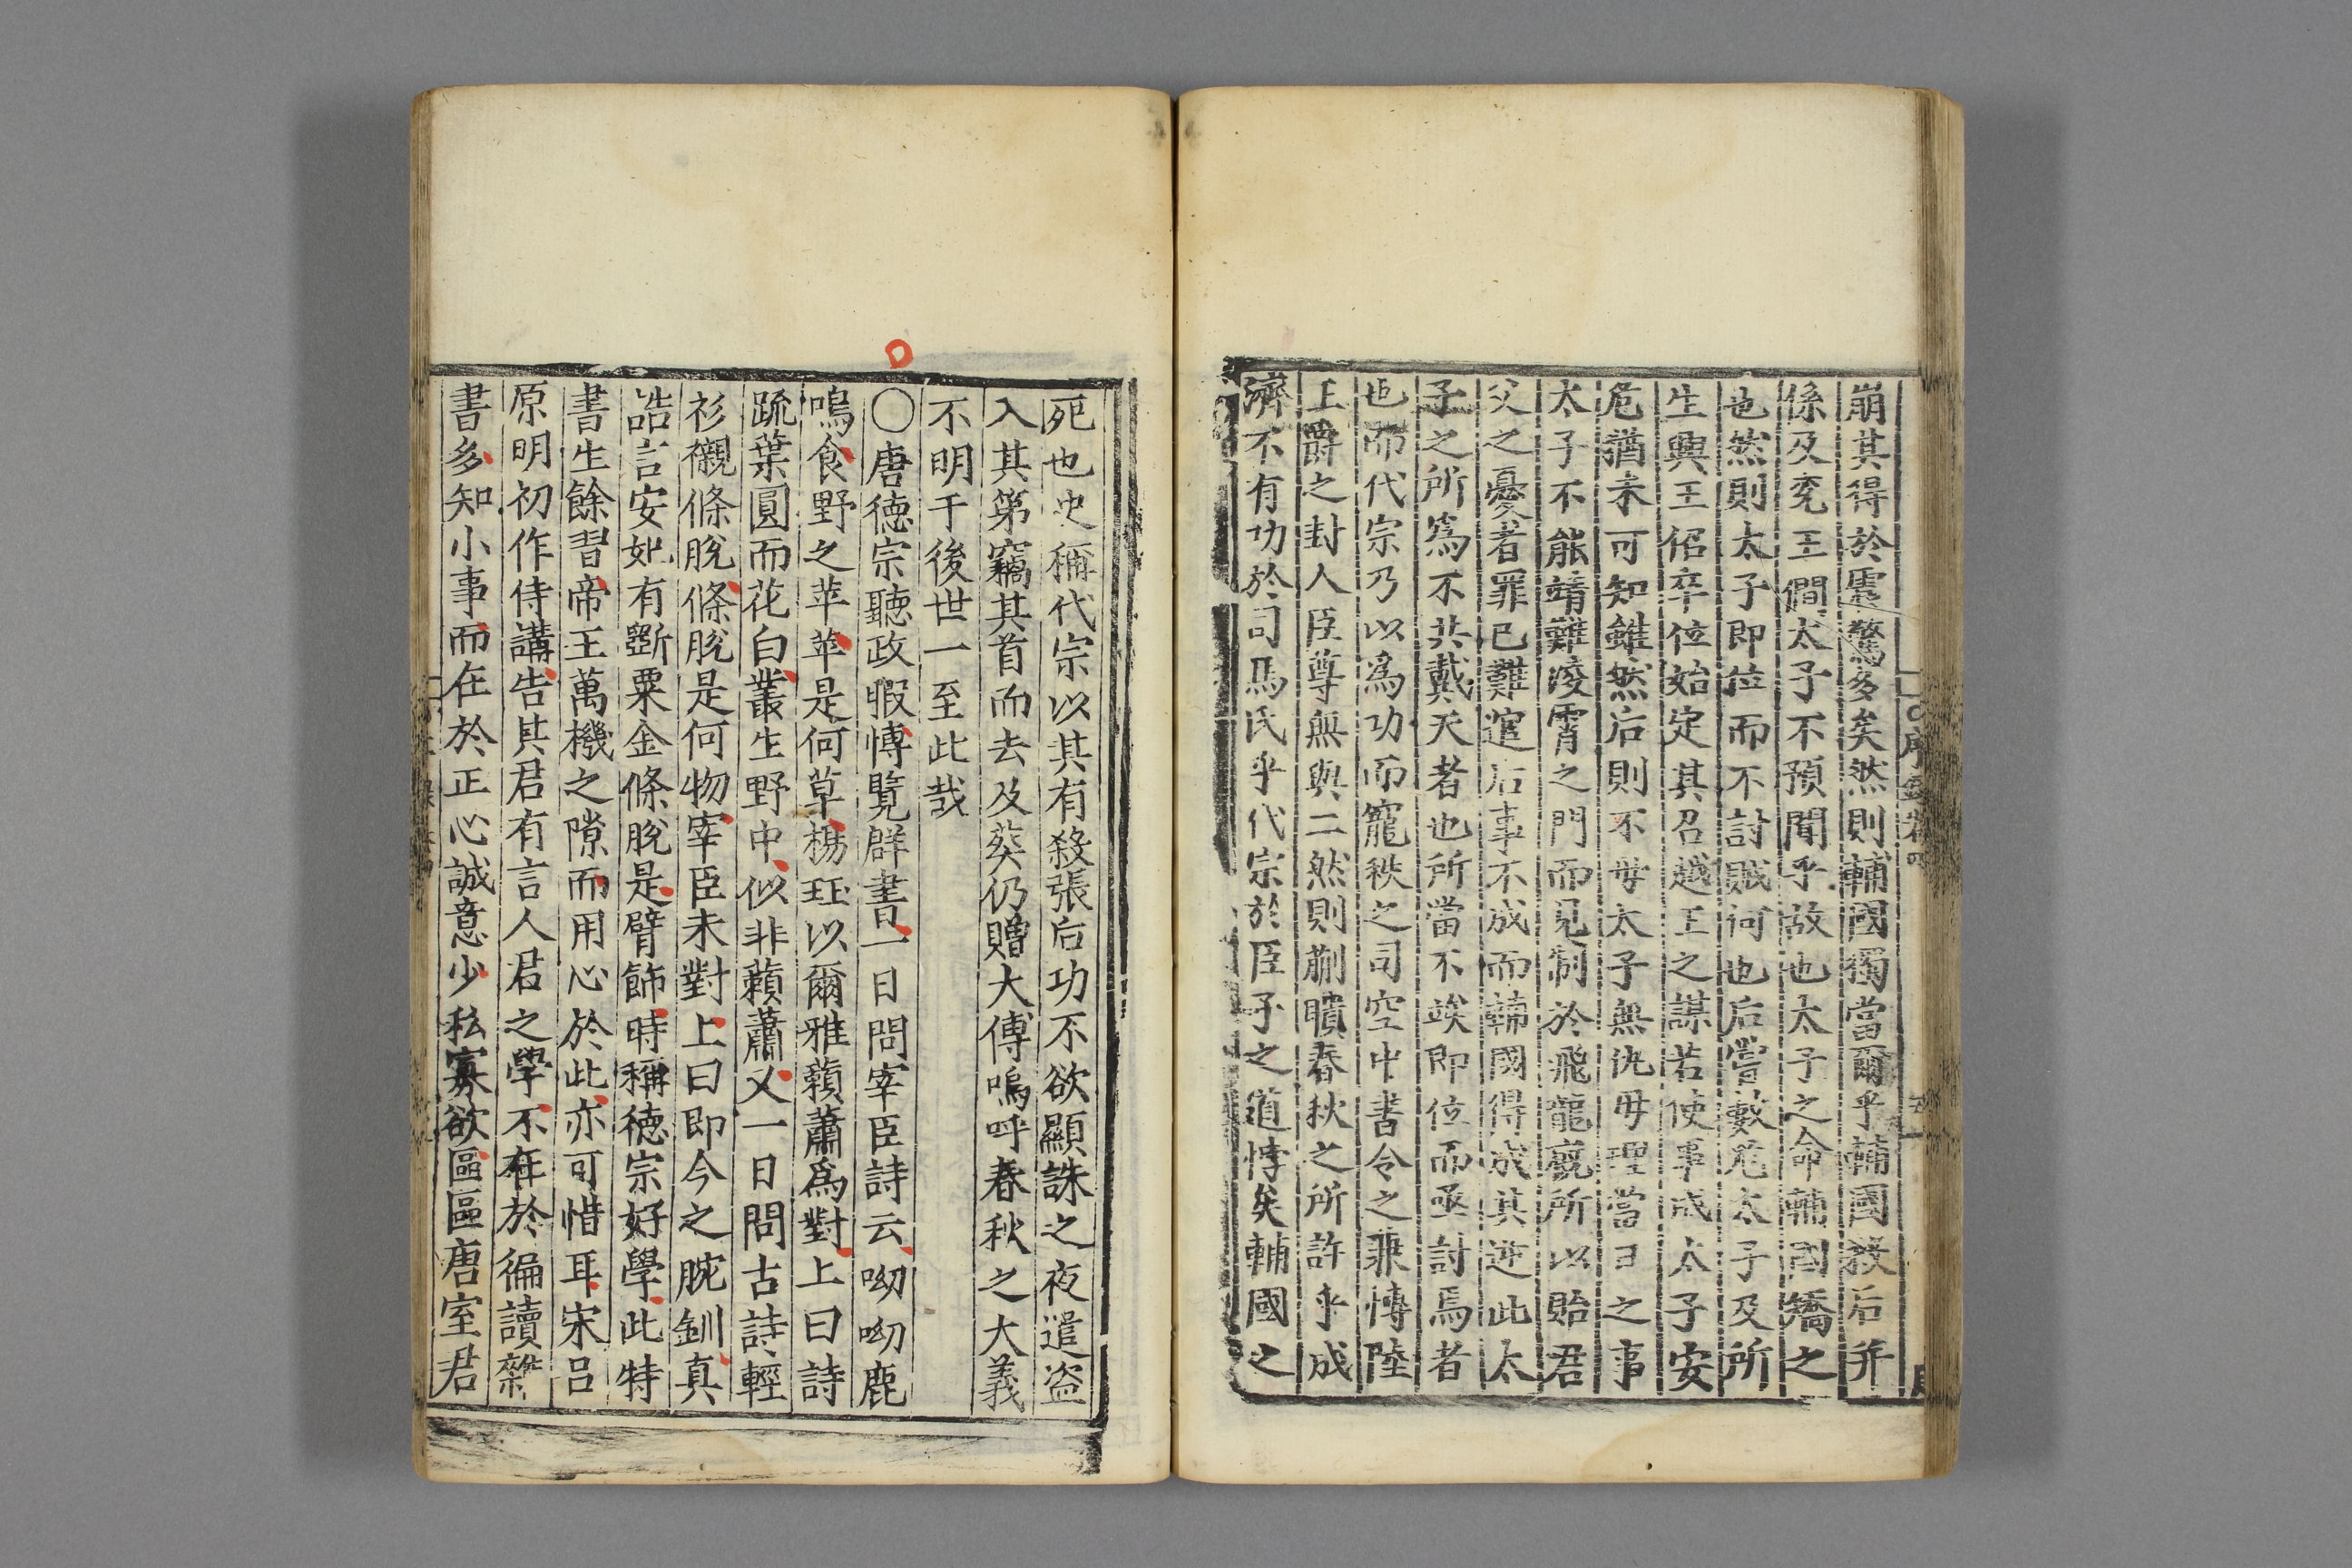 崩其得於震驚多矣然則輔國獨當爾乎輔國殺后并
係及兗王僴太子不預聞乎故也太子之命輔國矯之
也然則太子即位而不討賊何也后嘗數危太子及所
生興王佋卒位始定其召越王之謀若使事成太子安
危猶未可知雖然后則不母太子無仇母理當日之事
太子不能靖難凌霄之門而見制於飛龍廐所以貽君
父之憂者罪已難逭后事不成而輔國得成其逆此太
子之所爲不共戴天者也所當不竢即位而亟討焉者
也而代宗乃以爲功而寵秩之司空中書令之乘愽陸
王爵之封人臣尊無與二然則蒯聵春秋之所許乎成
濟不有功於司馬氏乎代宗於臣子之道悖矣輔國之
死也史稱代宗以其有殺張后功不欲顯誅之夜遣盜
入其第竊其首而去及葬仍贈大傅嗚呼春秋之大義
不明千後世一至此哉
〇唐德宗聽政暇愽覽群書一日問宰臣詩云呦呦鹿
鳴食野之苹苹是何草楊珏以爾雅藾蕭爲對上曰詩
疏葉圓而花白叢生野中似非藾蕭又一日問古詩輕
衫襯條脫條脫是何物宰臣未對上曰即今之腕釧真
誥言安妃有斵粟金條脫是臂飾時稱德宗好學此特
書生餘習帝王萬機之隙而用心於此亦可惜耳宋呂
原明初作侍講告其君有言人君之學不在於徧讀雜
書多知小事而在於正心誠意少私寡欲區區唐室君